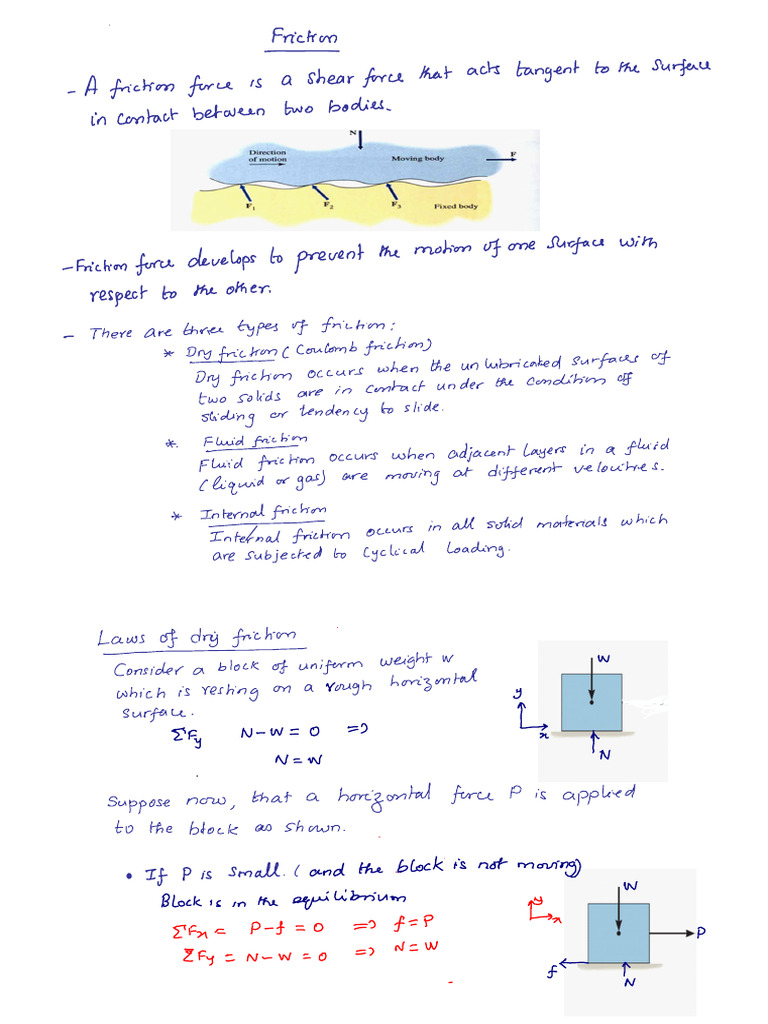 Friction
- A friction force is a shear force that acts tangent to the surface
in contact between two bodies.
N
Direction
of motion
Moving body
F
F1
F2
F3
Fixed body
- Friction force develops to prevent the motion of one surface with
respect to the other.
- There are three types of friction:
* Dry friction (Coulomb friction)
Dry friction occurs when the unlubricated surfaces of
two solids are in contact under the condition of
sliding or tendency to slide.
*. Fluid friction
Fluid friction occurs when adjacent layers in a fluid
(liquid or gas) are moving at different velocities.
* Internal friction
Internal friction occurs in all solid materials which
are subjected to cyclical loading.
Laws of dry friction
Consider a block of uniform weight w
which is resting on a rough horizontal
surface.
ΣFy N-W=0 =>
N=W
W
y
x
N
Suppose now, that a horizontal force P is applied
to the block as shown.
• If P is small. (and the block is not moving)
Block is in the equilibrium
ΣFx = P-f=0 => f=P
ΣFy = N-W=0 => N=W
y
x
W
P
f
N